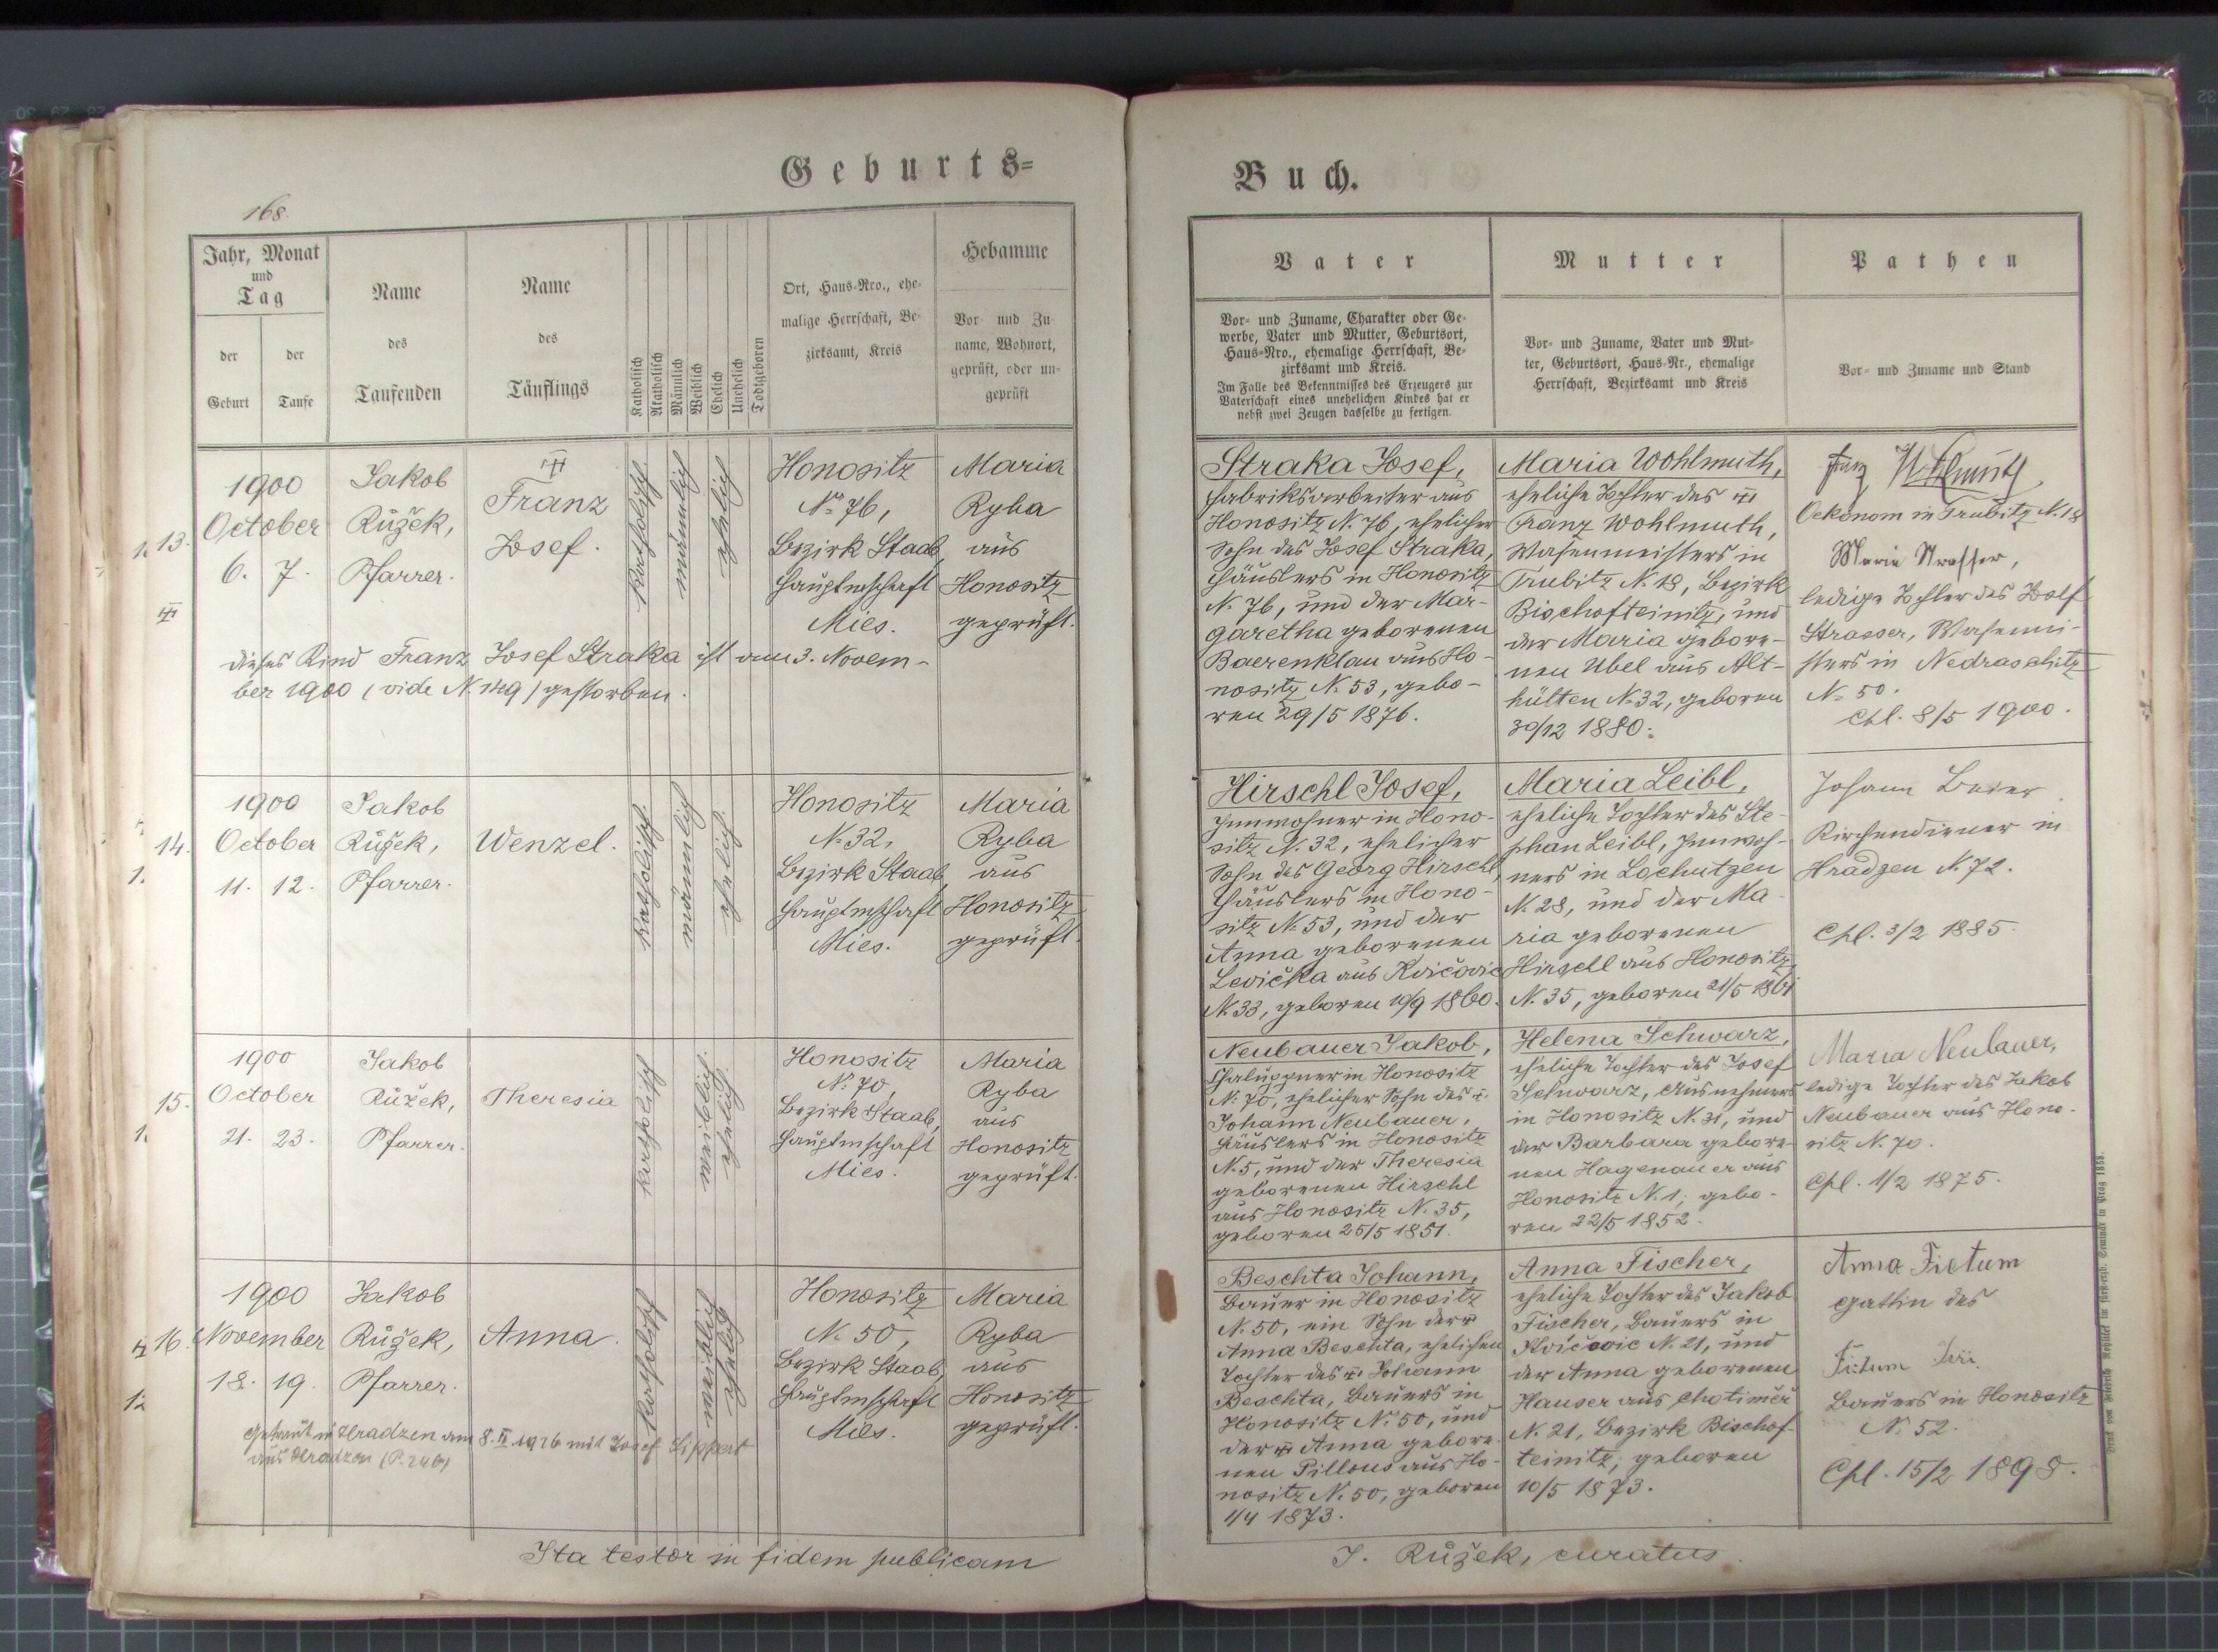 Geburts-
168.
Jahr, Monat
und
Tag
der
Geburt
der
Taufe
Name
des
Taufenden
Name
des
Täuflings
Katholisch
Akatholisch
Männlich
Weiblich
Ehelich
Unehelich
Todtgeboren
Ort, Haus-Nro., ehe-
malige Herrschaft, Be-
zirksamt, Kreis
Hebamme
Vor- und Zu-
name, Wohnort,
geprüft, oder un-
geprüft
13.
1900
October
6. 7.
Jakob
Růžek,
Pfarrer.
Franz
Josef.
katholisch
männlich
ehelich
Honositz
No 76,
Bezirk Staab,
Hauptmschaft
Mies.
Maria
Ryba
aus
Honositz
geprüft.
dieses Kind Franz Josef Straka ist am 3. Novem-
ber 1900 (vide N. 149) gestorben.
14.
1900
October
11. 12.
Jakob
Růžek,
Pfarrer.
Wenzel.
katholisch
männlich
ehelich
Honositz
N. 32,
Bezirk Staab,
Hauptmschaft
Mies.
Maria
Ryba
aus
Honositz
geprüft.
15.
1900
October
21. 23.
Jakob
Růžek,
Pfarrer.
Theresia
katholisch
weiblich
ehelich
Honositz
No 70,
Bezirk Staab,
Hauptmschaft
Mies.
Maria
Ryba
aus
Honositz
geprüft.
16.
1900
November
18. 19.
Jakob
Růžek,
Pfarrer.
Anna.
katholisch
weiblich
ehelich
Honositz
N. 50,
Bezirk Staab,
Hauptmschaft
Mies.
Maria
Ryba
aus
Honositz
geprüft.
Getraut in Hradzen am 8. II. 1926 mit Josef Lippert
aus Hradzen
Ita testor in fidem publicam
Buch.
Vater
Vor- und Zuname, Charakter oder Ge-
werbe, Vater und Mutter, Geburtsort,
Haus-Nro., ehemalige Herrschaft, Be-
zirksamt und Kreis.
Im Falle des Bekenntnisses des Erzeugers zur
Vaterschaft eines unehelichen Kindes hat er
nebst zwei Zeugen dasselbe zu fertigen.
Mutter
Vor- und Zuname, Vater und Mut-
ter, Geburtsort, Haus-Nr., ehemalige
Herrschaft, Bezirksamt und Kreis
Pathen
Vor- und Zuname und Stand
Straka Josef,
Fabriksarbeiter aus
Honositz N. 76, ehelicher
Sohn des Josef Straka,
Häuslers in Honositz
N. 76, und der Mar-
garetha geborenen
Baerenklau aus Ho-
nositz N. 53, gebo-
ren 29/5 1876.
Maria Wohlmuth,
eheliche Tochter des
Franz Wohlmuth,
Wasenmeisters in
Trubitz N. 18, Bezirk
Bischofteinitz, und
der Maria gebore-
nen Übel aus Alt-
hütten N. 32, geboren
30/12 1880.
Franz Wohlmuth
Oekonom in Trubitz N. 18
Marie Strasser,
ledige Tochter des
Strasser, Wasenmei-
sters in Nedraschitz
N. 50.
Cpl. 8/5 1900.
Hirschl Josef,
Inwohner in Hono-
sitz N. 32, ehelicher
Sohn des Georg Hirschl,
Häuslers in Hono-
sitz N. 53, und der
Anna geborenen
Levička aus Kvičovic
N. 33, geboren 10/9 1860.
Maria Leibl,
eheliche Tochter des Ste-
phan Leibl, Inwoh-
ners in Lochutzen
N. 28, und der Ma-
ria geborenen
Hirschl aus Honositz
N. 35, geboren 21/5 1861
Johann Beier
Kirchendiener in
Hradzen N. 72.
Cpl. 3/2 1885.
Neubauer Jakob,
Chaluppner in Honositz
N. 70, ehelicher Sohn des
Johann Neubauer,
Häuslers in Honositz
N. 5, und der Theresia
geborenen Hirschl
aus Honositz N. 35,
geboren 25/5 1851.
Helena Schwarz,
eheliche Tochter des Josef
Schwarz, Ausnehmers
in Honositz N. 31, und
der Barbara gebore-
nen Hagenauer aus
Honositz N. 1, gebo-
ren 22/5 1852.
Maria Neubauer,
ledige Tochter des Jakob
Neubauer aus Hono-
sitz N. 70.
Cpl. 1/2 1875.
Beschta Johann,
Bauer in Honositz
N. 50, ein Sohn der
Anna Beschta, ehelichen
Tochter des Johann
Beschta, Bauers in
Honositz N. 50, und
der Anna gebore-
nen Pillous aus Ho-
nositz N. 50, geboren
1/4 1873.
Anna Fischer,
eheliche Tochter des Jakob
Fischer, Bauers in
Kvičovic N. 21, und
der Anna geborenen
Hauser aus Chotiměř
N. 21, Bezirk Bischof-
teinitz, geboren
10/5 1873.
Anna Fictum
Gattin des
Fictum Jiří
Bauers in Honositz
N. 52.
Cpl. 15/2 1898.
J. Růžek, curatus.